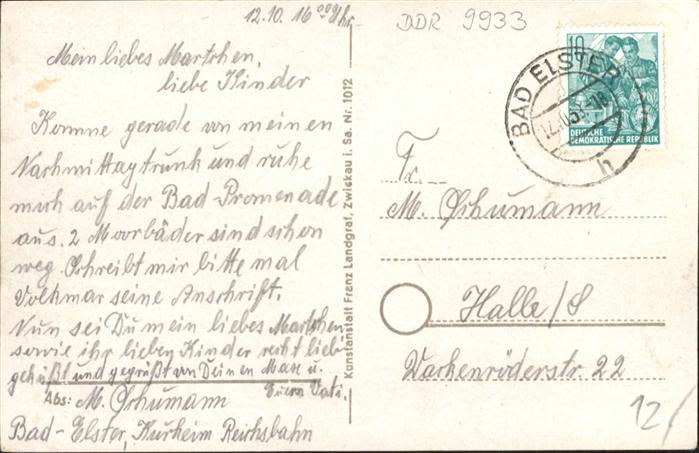 12.10. 16⁰⁰ Uhr
Mein liebes Martchen,
liebe Kinder
Komme gerade von meinen
Nachmittagtrunk und ruhe
mich auf der Bad-Promenade
aus. 2 Moorbäder sind schon
weg. Schreibt mir bitte mal
Volkmar seine Anschrift.
Nun sei Du mein liebes Martchen
sowie ihr lieben Kinder recht lieb
geküßt und gegrüßt von Deinen Maxe u.
Euern Vati.
Abs: M. Schumann
Bad-Elster, Kurheim Reichsbahn
Kunstanstalt Frenz Landgraf, Zwickau i. Sa. Nr. 1012
DDR 9933
10
DEUTSCHE
DEMOKRATISCHE REPUBLIK
BAD ELSTER
h
Fr.
M. Schumann
Halle/S
Wackenröderstr. 22
12/